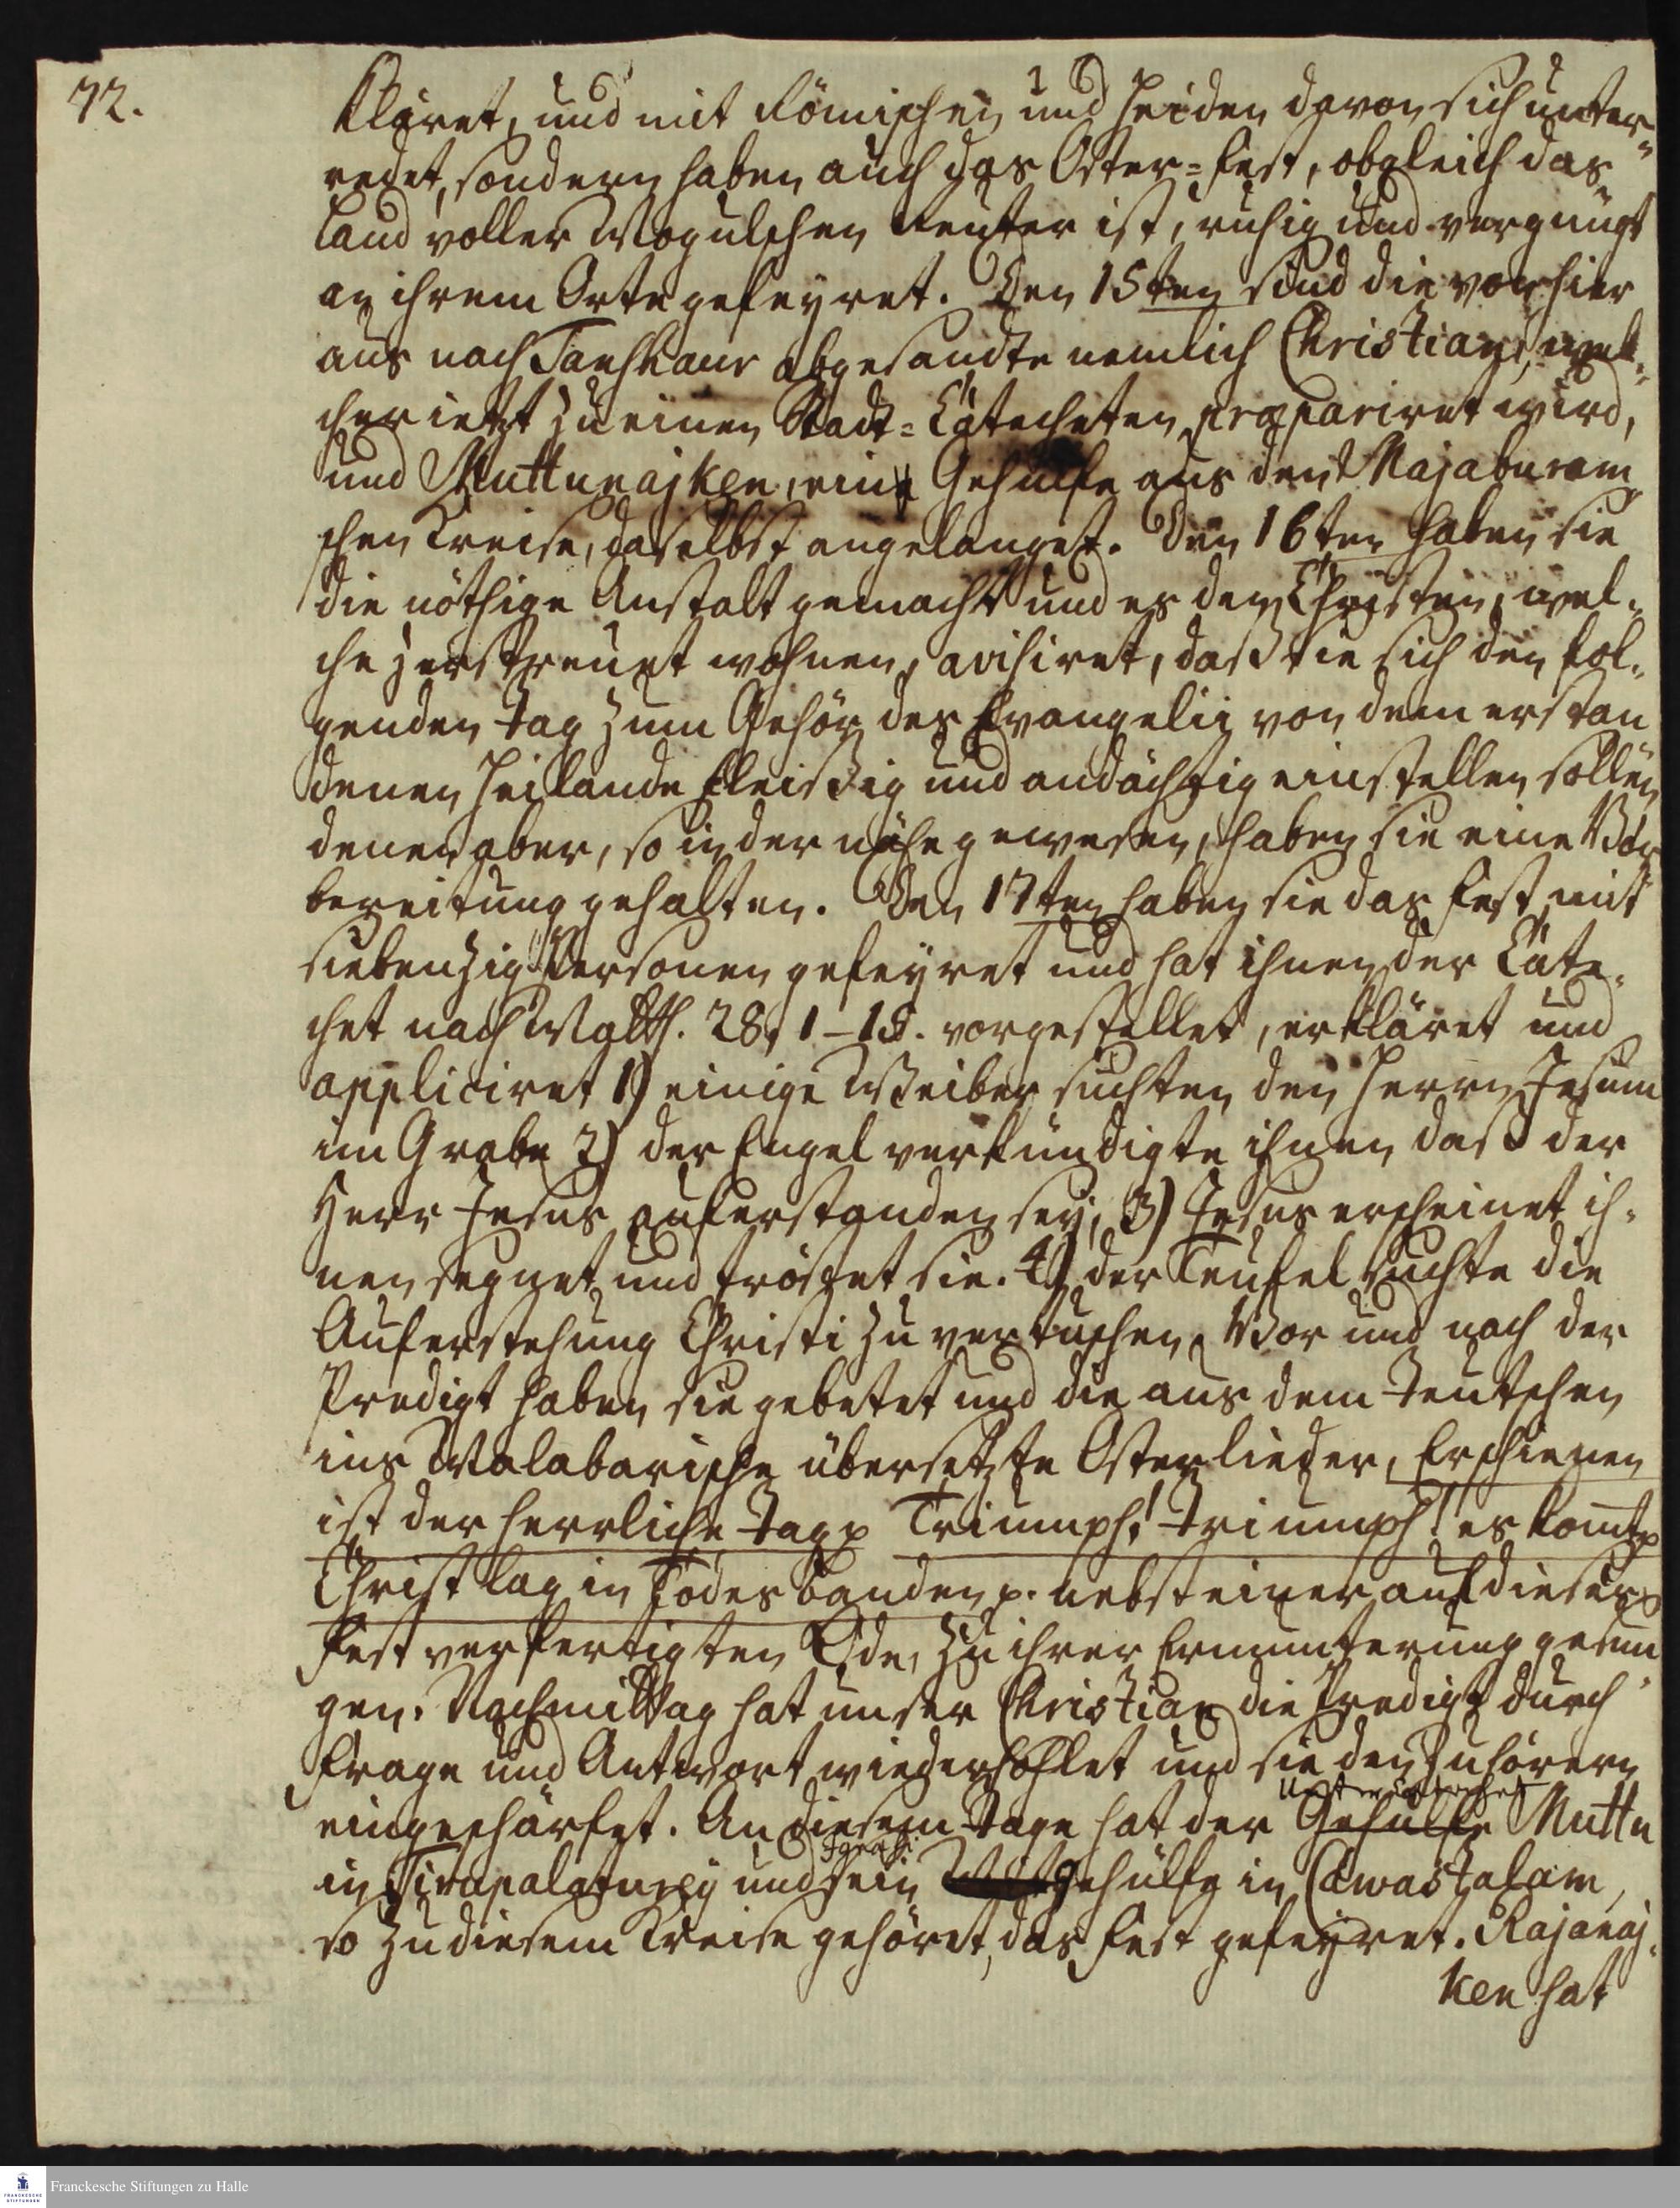 72.
kläret, und mit Römischen und Heiden davon sich unter-
redet, sondern haben auch das Oster-Fest, obgleich das
Land voller Mogulschen Reuter ist, ruhig und vergnügt
an ihrem Orte gefeyret. Den 15ten sind die von hier
aus nach Tanshaur abgesandte nemlich Christian, wel-
cher ietzt zu einen Stadt-Catecheten præpariret wird,
und Muttunajken, ein Gehülfe aus dem Majaburam
schen Creise, daselbst angelanget. Den 16ten haben sie
die nöthige Anstalt gemacht und es den Christen, wel-
che zerstreuet wohnen, avisiret, daß sie sich den fol-
genden Tag zum Gehör des Evangelii von dem erstan
denen Heilande fleißig und andächtig einstellen sollen
denen aber, so in der nähe gewesen, haben sie eine Vor
bereitung gehalten. Den 17ten haben sie das Fest mit
siebenzig Personen gefeyret und hat ihnen der Cate-
chet nach Matth. 28, 1-15. vorgestellet, erkläret und
appliciret 1) einige Weiber suchten den Herrn Jesum
im Grabe 2) der Engel verkündigte ihnen daß der
Herr Jesus auferstanden sey, 3) Jesus erscheinet ih-
nen segnet und tröstet sie. 4) der Teufel suchte die
Auferstehung Christi zu vertuschen. Vor und nach der
Predigt haben sie gebetet und die aus dem Teutschen
ins Malabarische übersetzte Osterlieder, Erschienen
ist der herrliche Tag p Triumph! Triumph! es komt p
Christ lag in Todes banden p. nebst einer auf dieses
Fest verfertigten Ode, zu ihrer Ermunterung gesun
gen. Nachmittag hat unser Christian die Predigt durch
Frage und Antwort wiederhohlet und sie den Zuhörern
Unter Catechet
eingeschärfet. An diesem Tage hat der Gehülfe Muttu
in Tirupalaturey und sein Gehülfe in Cawastalam,
so zu diesem Creise gehöret, das Fest gefeyret. Rajanaj-
ken hat
Franckesche Stiftungen zu Halle